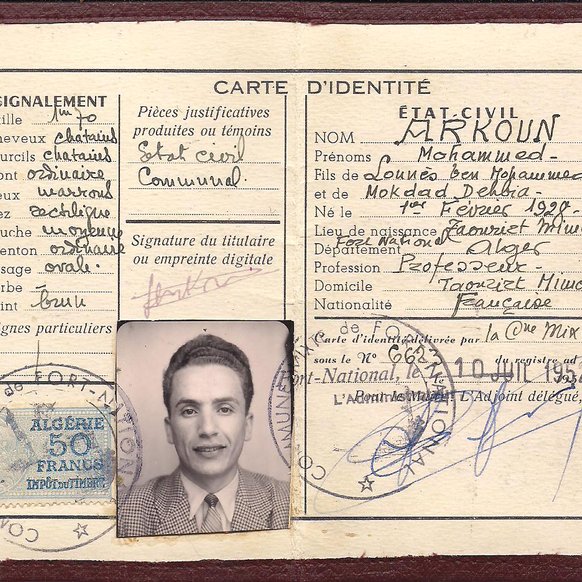 CARTE D'IDENTITÉ
SIGNALEMENT
1m70
cheveux chatains
sourcils chatains
ordinaire
yeux marrons
nez rectiligne
bouche moyenne
menton ordinaire
visage ovale.
barbe -
teint brun
signes particuliers
Pièces justificatives
produites ou témoins
Etat civil
Communal.
Signature du titulaire
ou empreinte digitale
Arkoun
ÉTAT-CIVIL
NOM ARKOUN
Prénoms Mohammed -
Fils de Lounès Ben Mohammed
et de Mokdad Dehbia -
Né le 1er Février 192
Lieu de naissance Taourirt Mimo
Fort National
Département Alger
Profession Professeur -
Domicile Taourirt Mimo
Nationalité Française
Carte d'identité délivrée par la Cne Mix
sous le N° 668 du registre ad
Fort-National, le 10 JUIL 195
Pour le Maire, L'Adjoint délégué,
L'Administ
de FORT-NATIONAL
COMMUNE
de FORT-NATIONAL
ALGÉRIE
50
FRANCS
IMPÔT DU TIMBRE